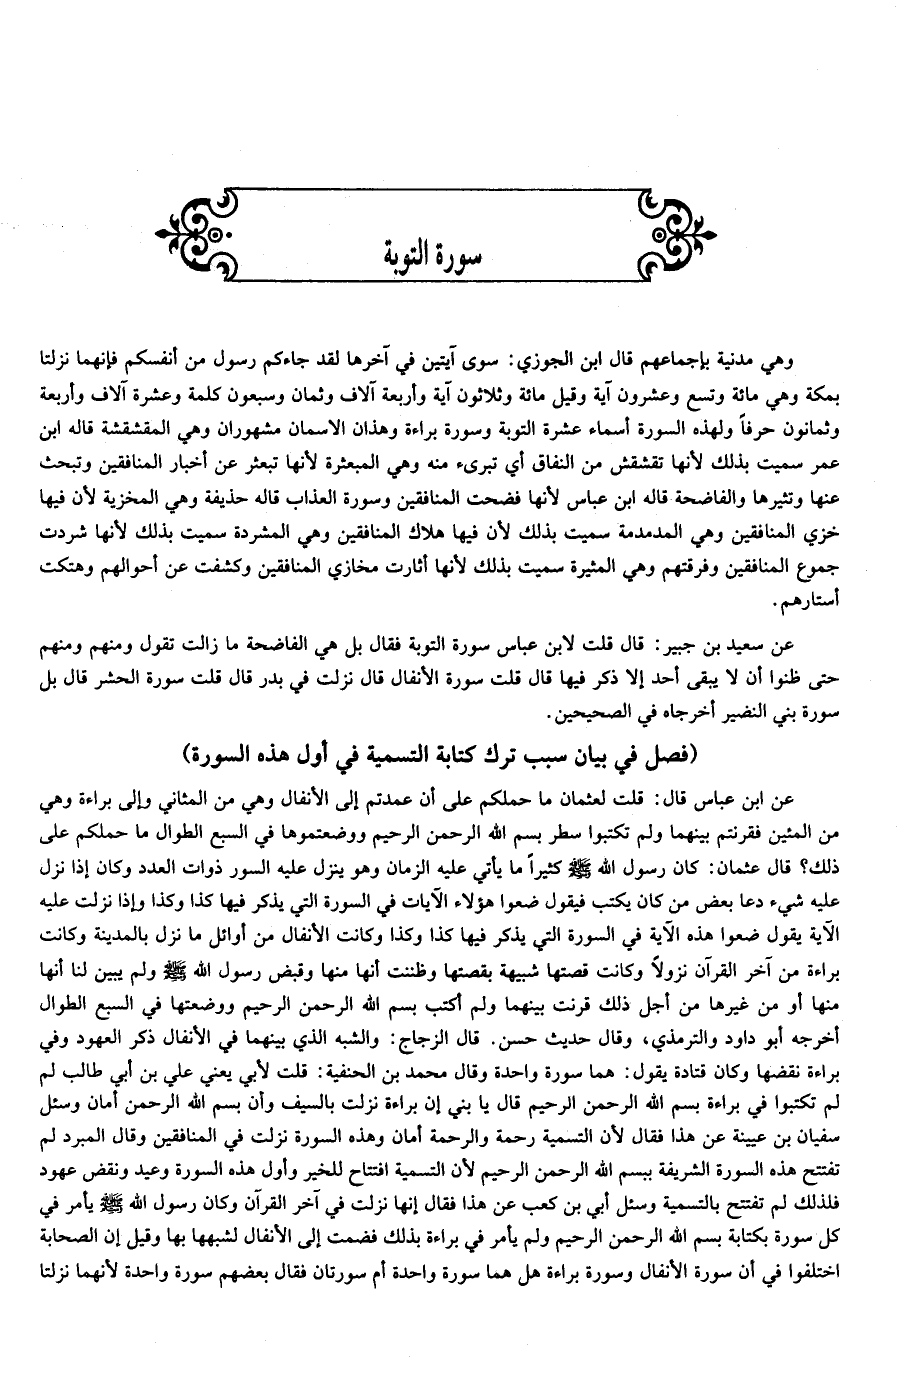 سورة التوبة
وهي مدنية بإجماعهم قال ابن الجوزي: سوى آيتين في آخرها لقد جاءكم رسول من أنفسكم فإنهما نزلتا
بمكة وهي مائة وتسع وعشرون آية وقيل مائة وثلاثون آية وأربعة آلاف وثمان وسبعون كلمة وعشرة آلاف وأربعة
وثمانون حرفاً ولهذه السورة أسماء عشرة التوبة وسورة براءة وهذان الاسمان مشهوران وهي المقشقشة قاله ابن
عمر سميت بذلك لأنها تقشقش من النفاق أي تبرىء منه وهي المبعثرة لأنها تبعثر عن أخبار المنافقين وتبحث
عنها وتثيرها والفاضحة قاله ابن عباس لأنها فضحت المنافقين وسورة العذاب قاله حذيفة وهي المخزية لأن فيها
خزي المنافقين وهي المدمدمة سميت بذلك لأن فيها هلاك المنافقين وهي المشردة سميت بذلك لأنها شردت
جموع المنافقين وفرقتهم وهي المثيرة سميت بذلك لأنها أثارت مخازي المنافقين وكشفت عن أحوالهم وهتكت
أستارهم.
عن سعيد بن جبير: قال قلت لابن عباس سورة التوبة فقال بل هي الفاضحة ما زالت تقول ومنهم ومنهم
حتى ظنوا أن لا يبقى أحد إلا ذكر فيها قال قلت سورة الأنفال قال نزلت في بدر قال قلت سورة الحشر قال بل
سورة بني النضير أخرجاه في الصحيحين.
(فصل في بيان سبب ترك كتابة التسمية في أول هذه السورة)
عن ابن عباس قال: قلت لعثمان ما حملكم على أن عمدتم إلى الأنفال وهي من المثاني وإلى براءة وهي
من المئين فقرنتم بينهما ولم تكتبوا سطر بسم الله الرحمن الرحيم ووضعتموها في السبع الطوال ما حملكم على
ذلك؟ قال عثمان: كان رسول الله ﷺ كثيراً ما يأتي عليه الزمان وهو ينزل عليه السور ذوات العدد وكان إذا نزل
عليه شيء دعا بعض من كان يكتب فيقول ضعوا هؤلاء الآيات في السورة التي يذكر فيها كذا وكذا وإذا نزلت عليه
الآية يقول ضعوا هذه الآية في السورة التي يذكر فيها كذا وكذا وكانت الأنفال من أوائل ما نزل بالمدينة وكانت
براءة من آخر القرآن نزولاً وكانت قصتها شبيهة بقصتها وظننت أنها منها وقبض رسول الله ﷺ ولم يبين لنا أنها
منها أو من غيرها من أجل ذلك قرنت بينهما ولم أكتب بسم الله الرحمن الرحيم ووضعتها في السبع الطوال
أخرجه أبو داود والترمذي، وقال حديث حسن. قال الزجاج: والشبه الذي بينهما في الأنفال ذكر العهود وفي
براءة نقضها وكان قتادة يقول: هما سورة واحدة وقال محمد بن الحنفية: قلت لأبي يعني علي بن أبي طالب لم
لم تكتبوا في براءة بسم الله الرحمن الرحيم قال يا بني إن براءة نزلت بالسيف وأن بسم الله الرحمن أمان وسئل
سفيان بن عيينة عن هذا فقال لأن التسمية رحمة والرحمة أمان وهذه السورة نزلت في المنافقين وقال المبرد لم
تفتتح هذه السورة الشريفة ببسم الله الرحمن الرحيم لأن التسمية افتتاح للخير وأول هذه السورة وعيد ونقض عهود
فلذلك لم تفتتح بالتسمية وسئل أبي بن كعب عن هذا فقال إنها نزلت في آخر القرآن وكان رسول الله ﷺ يأمر في
كل سورة بكتابة بسم الله الرحمن الرحيم ولم يأمر في براءة بذلك فضمت إلى الأنفال لشبهها بها وقيل إن الصحابة
اختلفوا في أن سورة الأنفال وسورة براءة هل هما سورة واحدة أم سورتان فقال بعضهم سورة واحدة لأنهما نزلتا